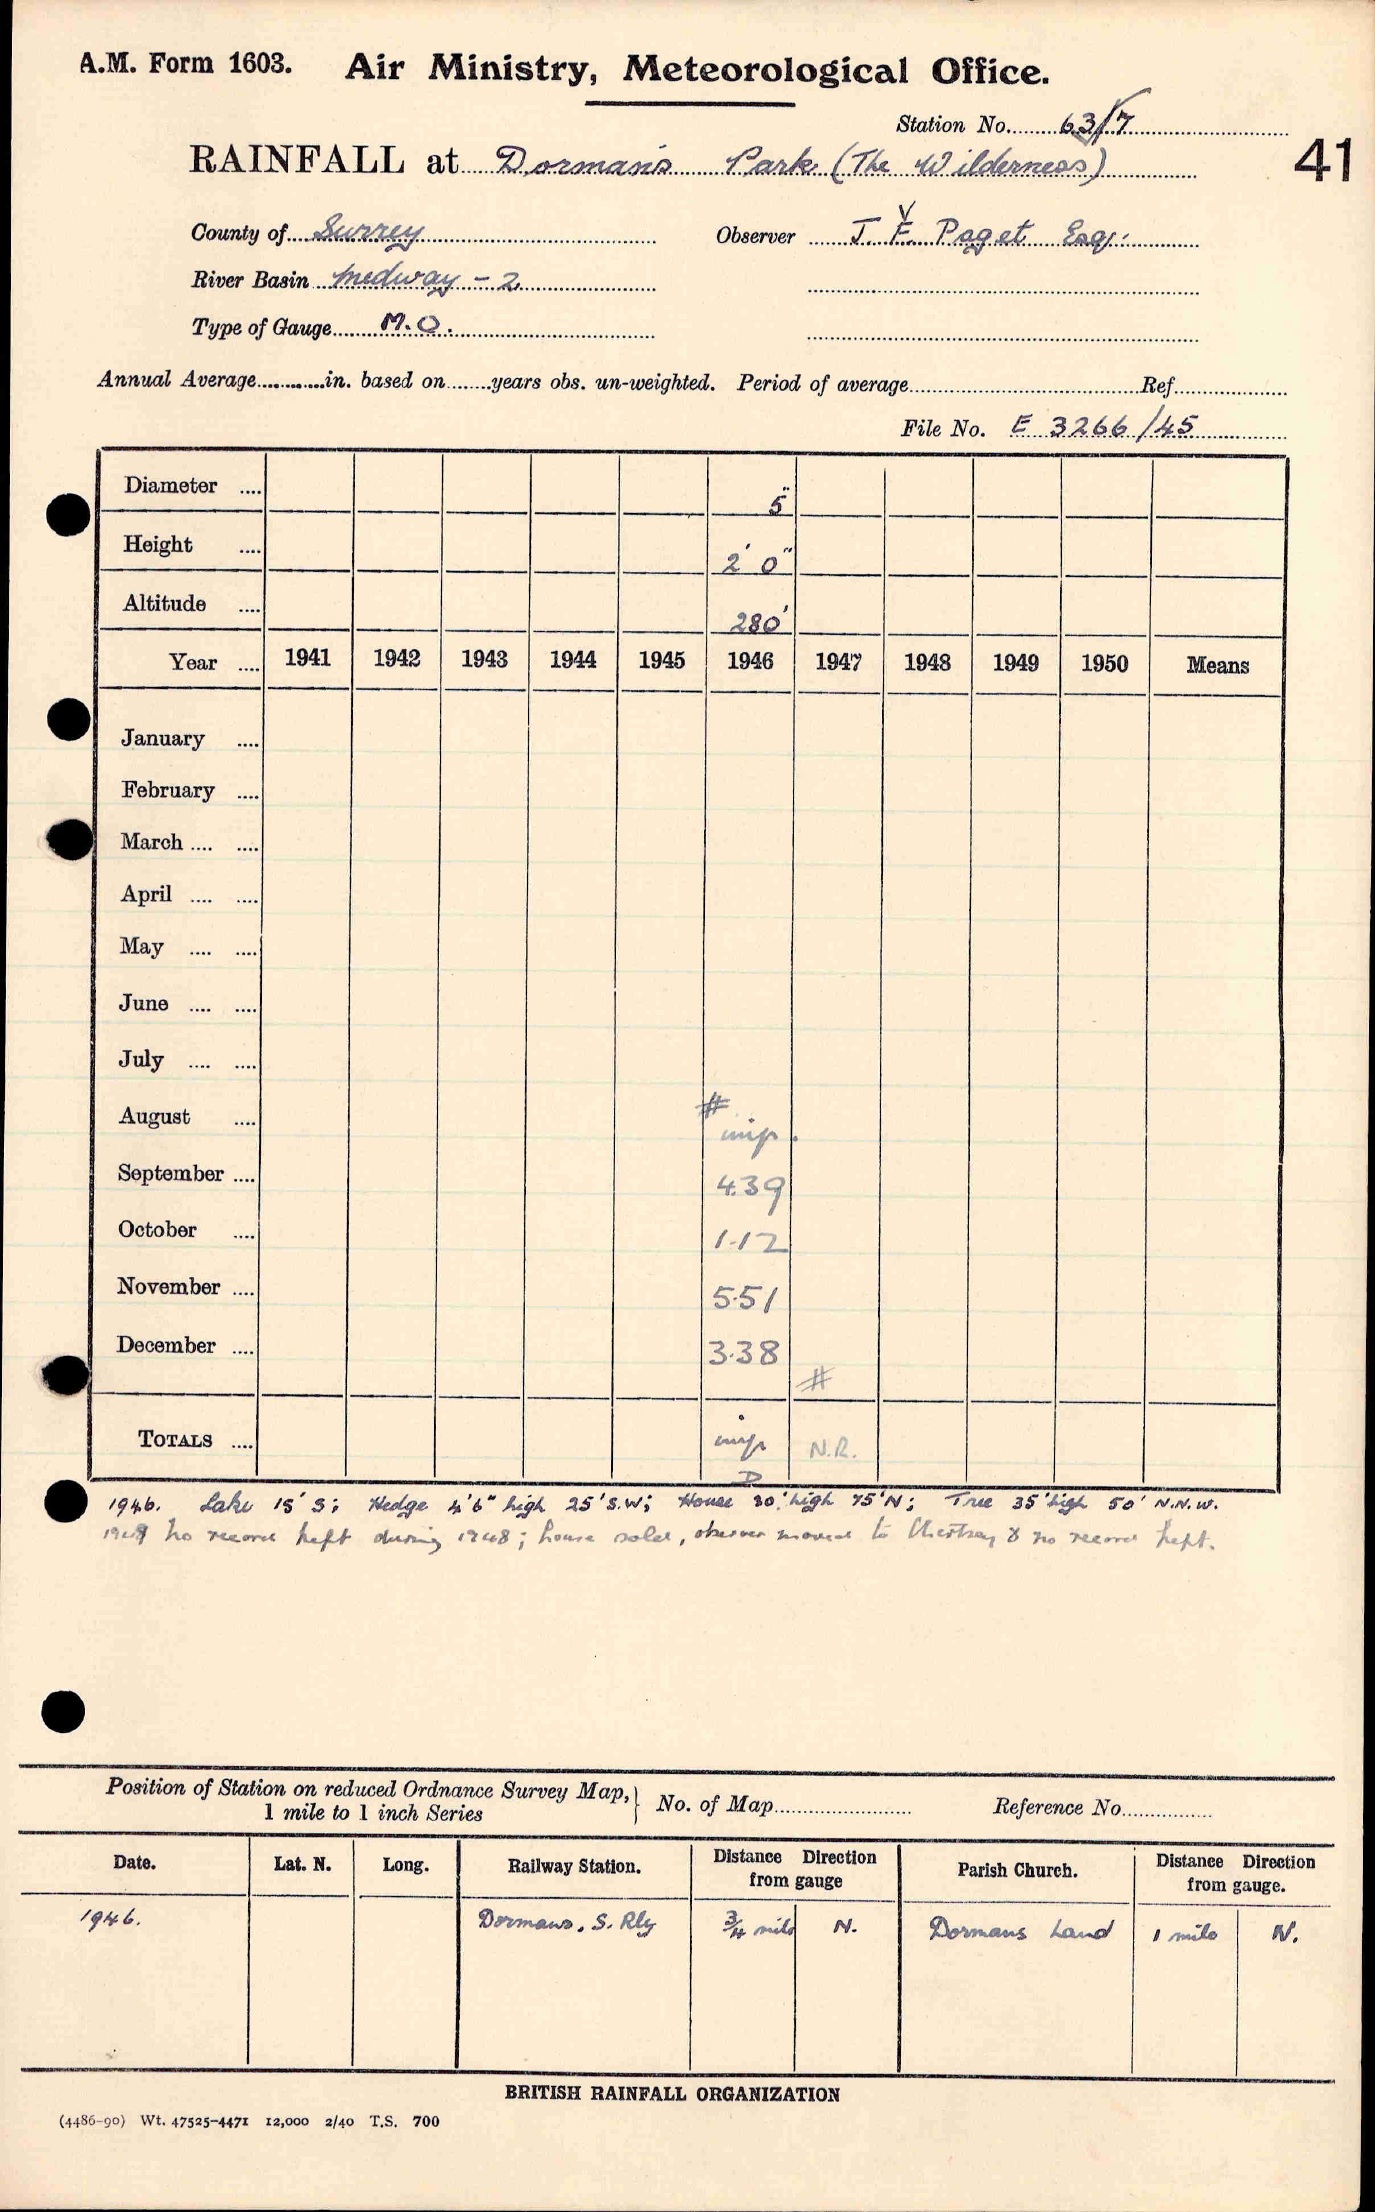 A.M. Form 1603. Air Ministry, Meteorological Office.
Station No. 63/7
RAINFALL at Dormans Park (The Wilderness)
41
County of Surrey Observer J. F. Paget Esq.
V
River Basin Medway - 2
Type of Gauge M.O.
Annual Average............in. based on........years obs. un-weighted. Period of average Ref.
File No. E 3266/45
Diameter .... 5"
Height .... 2' 0"
Altitude .... 280'
Year .... 1941 1942 1943 1944 1945 1946 1947 1948 1949 1950 Means
January ....
February ....
March .... ....
April .... ....
May .... ....
June .... ....
July .... ....
August .... # imp.
September .... 4.39
October .... 1.12
November .... 5.51
December .... 3.38 #
TOTALS .... imp N.R.
D
1946. Lake 15' S; Hedge 4'6" high 25' S.W; House 30' high 75' N; Tree 35' high 50' N.N.W.
1949 no record kept during 1948; house sold, observer moved to Chertsey & no record kept.
Position of Station on reduced Ordnance Survey Map, } No. of Map Reference No.
1 mile to 1 inch Series
Date. Lat. N. Long. Railway Station. Distance Direction from gauge Parish Church. Distance Direction from gauge.
1946. Dormans. S. Rly 3/4 mile N. Dormans Land 1 mile N.
BRITISH RAINFALL ORGANIZATION
(4486-90) Wt. 47525-4471 12,000 2/40 T.S. 700